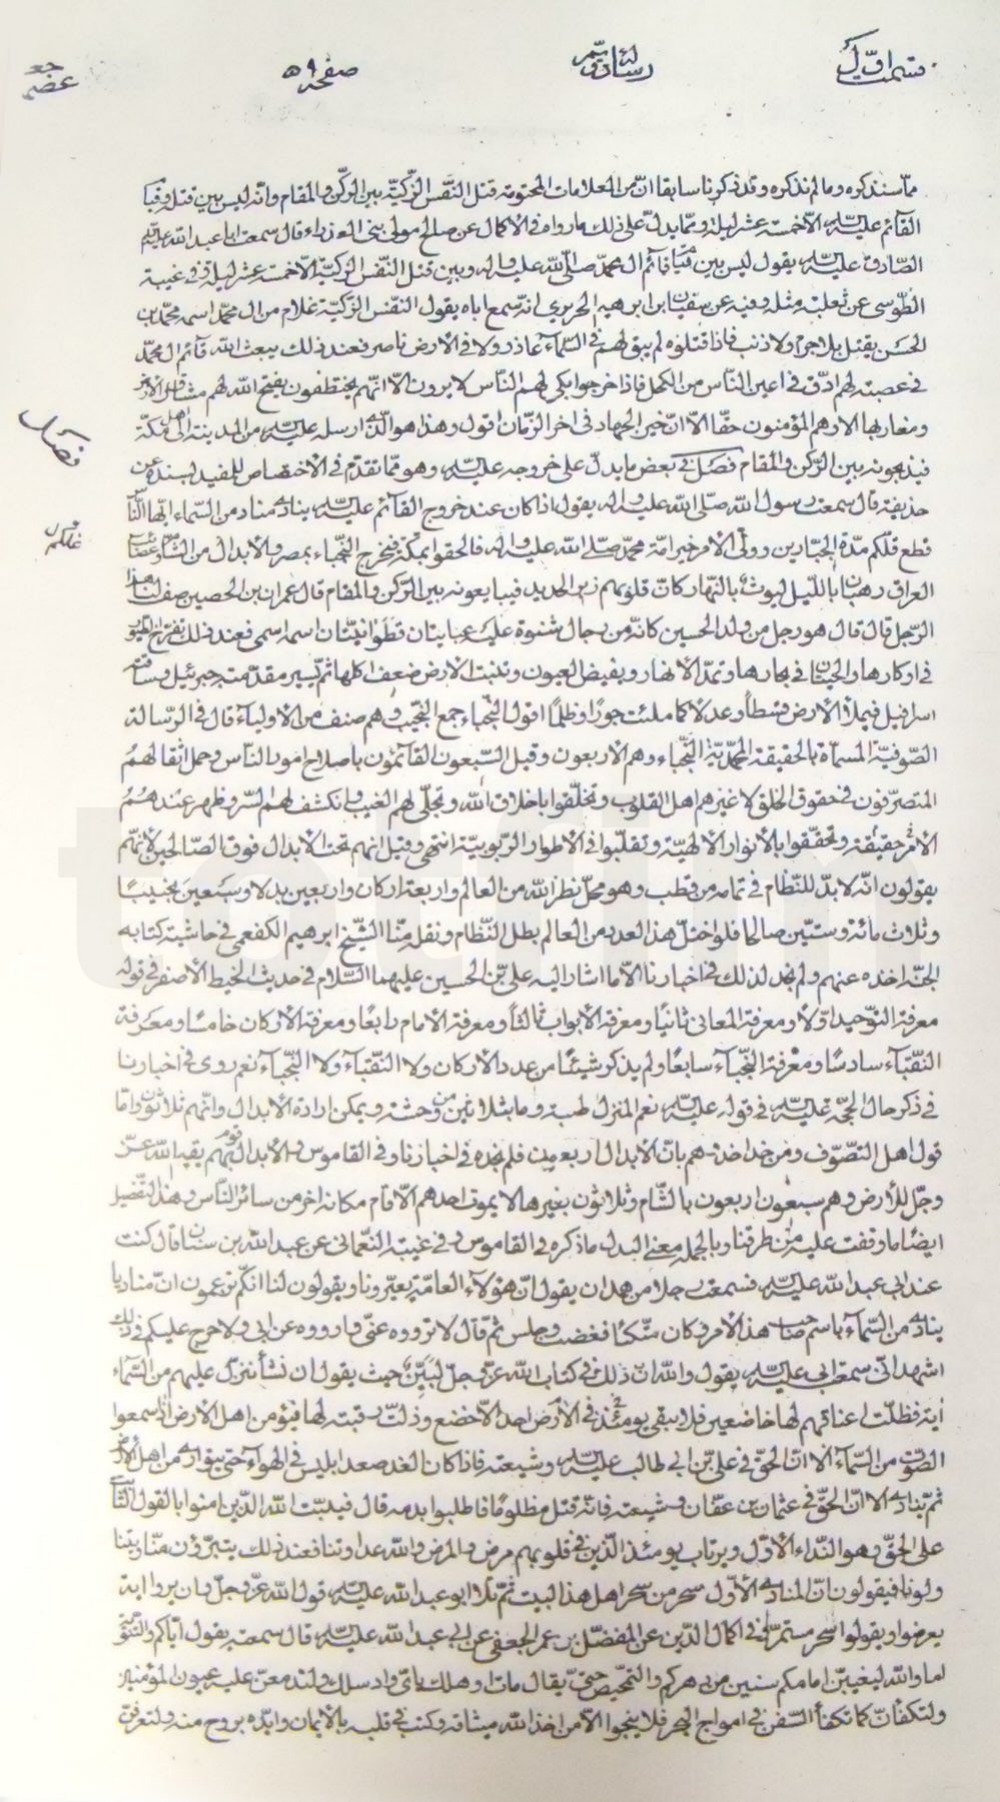 قسمت اول
رسالة دويم
صفحه ٥٩
مما سنذكره وما لم نذكره وقد ذكرنا سابقا ان من العلامات المحتومة قتل النفس الزكية بين الركن والمقام وانه ليس بين قتله وقيام
القآئم عليه السلام الا خمسة عشر ليلة ومما يدل على ذلك ما رواه في الاكمال عن صالح مولى بني العذراء قال سمعت ابا عبد الله عليه السلام
الصادق عليه السلام يقول ليس بين قيام قائم ال محمد صلى الله عليه واله وبين قتل النفس الزكية الا خمسة عشر ليلة وفي غيبة
الطوسي عن ثعلبة مثله وفيه عن سفيان بن ابرهيم الحريري انه سمع اباه يقول النفس الزكية غلام من ال محمد اسمه محمد بن
الحسن يقتل بلا جرم ولا ذنب فاذا قتلوه لم يبق لهم في السمآء عاذر ولا في الارض ناصر فعند ذلك يبعث الله قآئم ال محمد
في عصبة لهم ادق في اعين الناس من الكحل فاذا خرجوا بكى لهم الناس لا يرون الا انهم يختطفون يفتح الله لهم مشارق الارض
ومغاربها الا وهم المؤمنون حقا الا ان خير الجهاد في اخر الزمان اقول وهذا هو الذي ارسله عليه السلام من المدينة الى اهل مكة
فيذبحونه بين الركن والمقام فصل في بعض ما يدل على خروجه عليه السلام وهو مما تقدم في الاختصاص للمفيد بسنده عن
حذيفة قال سمعت رسول الله صلى الله عليه واله يقول اذا كان عند خروج القآئم عليه السلام ينادي مناد من السماء ايها الناس
قطع عنكم مدة الجبارين وولى الامر خير امة محمد صلى الله عليه واله فالحقوا بمكة فيخرج النجباء بمصر والابدال من الشام وعصائب
العراق رهبان بالليل ليوث بالنهار كان قلوبهم زبر الحديد فيبايعونه بين الركن والمقام قال عمران بن الحصين صف لنا هذا
الرجل قال قال هو رجل من ولد الحسين كانه من رجال شنوة عليه عبايتان قطوانيتان اسمه اسمي فعند ذلك تفرخ الطيور
في اوكارها والحيتان في بحارها وتمد الانهار ويفيض العيون وتنبت الارض ضعف اكلها ثم يسير مقدمته جبرئيل وساقته
اسرافيل فيملأ الارض قسطاً وعدلا كما ملئت جوراً وظلماً اقول النجباء جمع النجيب وهم صنف من الاولياء قال في الرسالة
الصوفية المسماة بالحقيقة المحمدية النجباء وهم الاربعون وقيل السبعون القآئمون باصلاح امور الناس وحمل اثقالهم
المتصرفون في حقوق الخلق لا غيرهم اهل القلوب وتخلقوا باخلاق الله وتجلى لهم الغيب وانكشف لهم السر وظهر عندهم
الامر حقيقة وتحققوا بالانوار الالهية وتقلبوا في الاطوار الربوبية انتهى وقيل انهم تحت الابدال فوق الصالحين لانهم
يقولون انه لا بد للنظام في تمامه من قطب وهو محل نظر الله من العالم واربعة اركان واربعين بدلا وسبعين نجيبا
وثلاث مائة وستين صالحا فلو اختل هذا العدد من العالم بطل النظام ونقل منا الشيخ ابرهيم الكفعمي في حاشية كتابه
الجنة اخذه عنهم ولم نجد لذلك في اخبارنا الا ما اشار اليه على بن الحسين عليهما السلام في حديث الخيط الاصفر في قوله
معرفة التوحيد اولا ومعرفة المعاني ثانيا ومعرفة الابواب ثالثاً ومعرفة الامام رابعاً ومعرفة الاركان خامسا ومعرفة
النقباء سادسا ومعرفة النجباء سابعا ولم يذكر شيئا من عدد الاركان ولا النقباء ولا النجباء نعم روى في اخبارنا
في ذكر حال الحجة عليه السلام في قوله عليه السلام نعم المنزل طيبة وما بثلاثين من وحشة ويمكن ارادة الابدال وانهم ثلاثون واما
قول اهل التصوف ومن حذا حذوهم بان الابدال اربعون فلم نجده في اخبارنا وفي القاموس والابدال قوم بهم يقيم الله عز
وجل الارض وهم سبعون اربعون بالشام وثلاثون بغيرها لا يموت احدهم الا قام مكانه اخر من سائر الناس وهذا التفصيل
ايضا ما وقفت عليه من طرقنا وبالجملة معنى البدل ما ذكره في القاموس وفي غيبة النعماني عن عبد الله بن سنان قال كنت
عند ابي عبد الله عليه السلام فسمعت رجلا من همدان يقول ان هؤلاء العامة يعيرونا ويقولون لنا انكم تزعمون ان مناديا
ينادي من السماء باسم صاحب هذا الامر وكان متكئا فغضب وجلس ثم قال لا ترووه عني وارووه عن ابي ولا حرج عليكم في ذلك
اشهد اني سمعت ابي عليه السلام يقول والله ان ذلك في كتاب الله عز وجل لبين حيث يقول ان نشأ ننزل عليهم من السماء
اية فظلت اعناقهم لها خاضعين فلا يبقى يومئذ في الارض احد الا خضع وذلت رقبته لها فيؤمن اهل الارض اذا سمعوا
الصوت من السماء الا ان الحق في على بن ابي طالب عليه السلام وشيعته فاذا كان الغد صعد ابليس في الهوآء حتى يتوارى من اهل الارض
ثم ينادي الا ان الحق في عثمان بن عفان وشيعته فانه قتل مظلوما فاطلبوا بدمه قال فيثبت الله الذين امنوا بالقول الثابت
على الحق وهو النداء الاول ويرتاب يومئذ الذين في قلوبهم مرض والمرض والله عداوتنا فعند ذلك يتبرؤن منا ويتنا
ولونا فيقولون ان المنادي الاول سحر من سحر اهل هذا البيت ثم تلا ابو عبد الله عليه السلام قول الله عز وجل وان يروا اية
يعرضوا ويقولوا سحر مستمر في اكمال الدين عن المفضل بن عمر الجعفي عن ابي عبد الله عليه السلام قال سمعته يقول اياكم والتنويه
اما والله ليغيبن امامكم سنين من دهركم والتمحيص حتى يقال مات او هلك باي واد سلك ولتدمعن عليه عيون المؤمنين
ولتكفأن كما تكفأ السفن في امواج البحر فلا ينجوا الا من اخذ الله ميثاقه وكتب في قلبه الايمان وايده بروح منه ولترفعن
فصل
عنكم